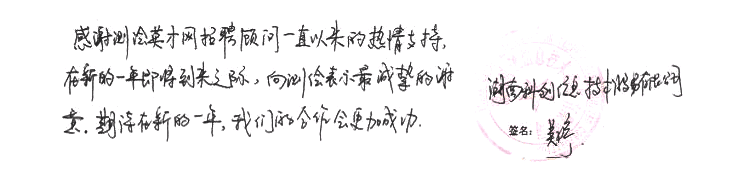 感谢测绘英才网招聘顾问一直以来的热情支持,
在新的一年即将到来之际,向测绘表示最诚挚的谢
意.期待在新的一年,我们的合作会更加成功.
湖南科创信息技术股份有限公司
签名: